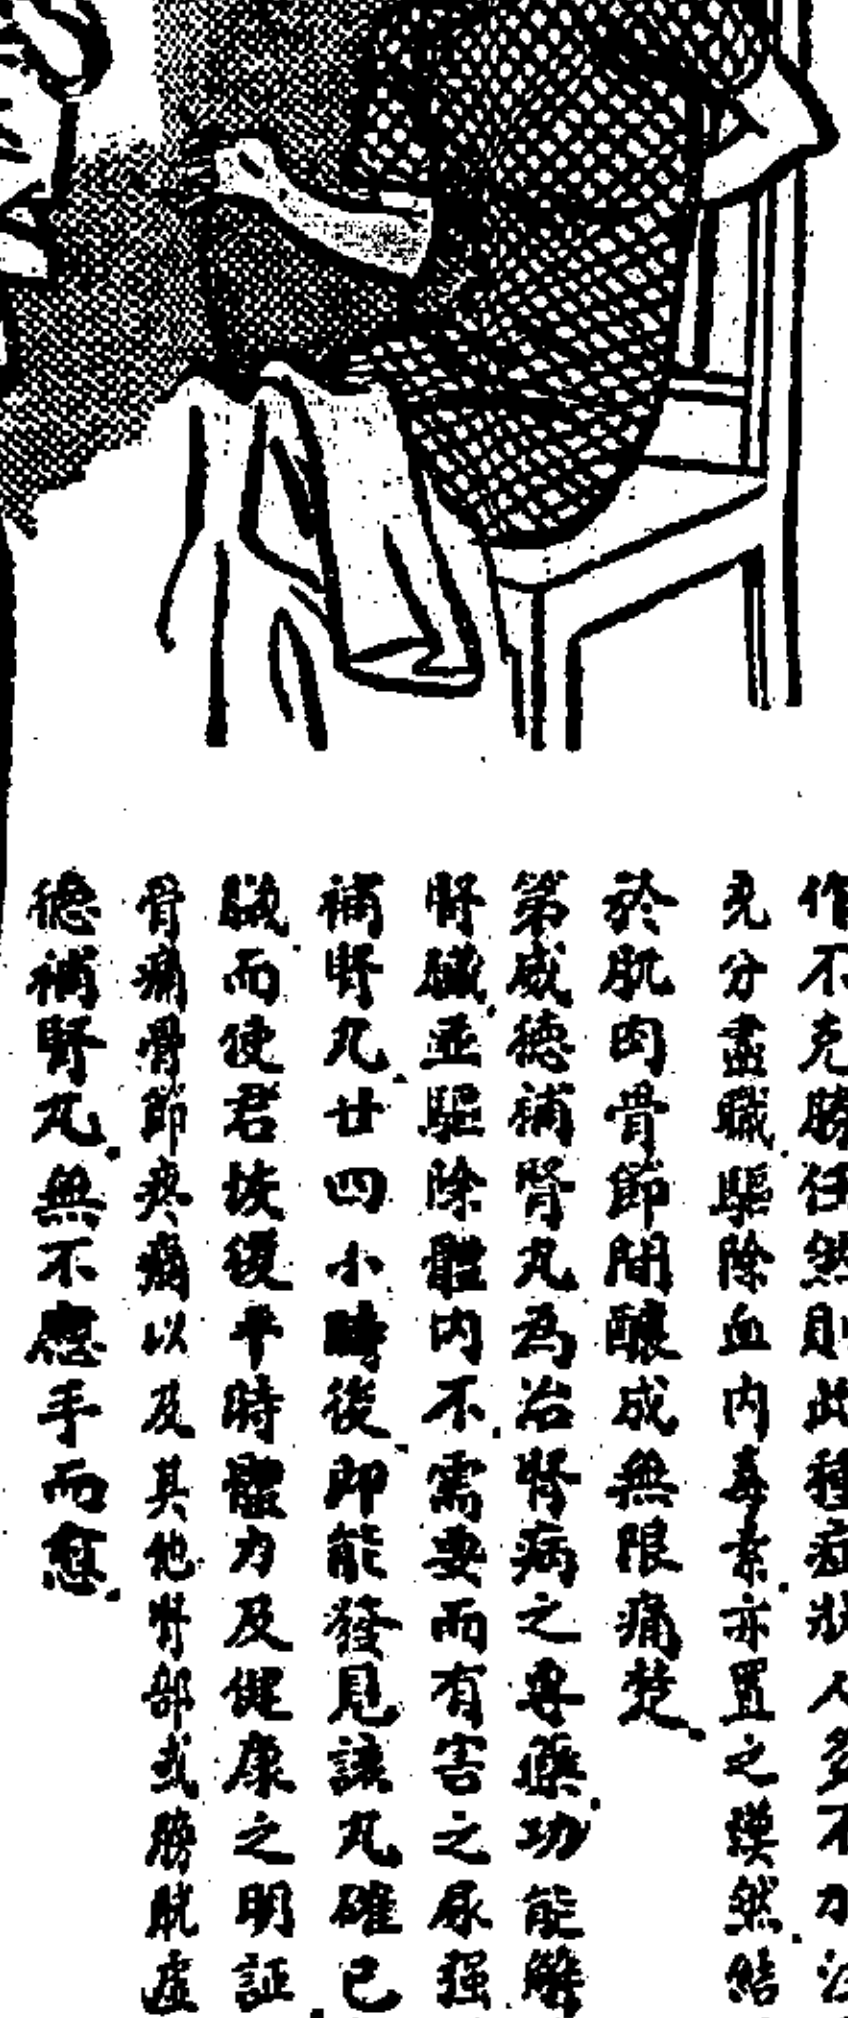 作不克勝任然則此種症狀人多不加注
充分盡職驅除血內毒素亦置之漠然結
於肌肉骨節間釀成無限痛楚
第威德補腎丸為治腎病之專藥功能解
腎臟並驅除體內不需要而有害之尿强
補腎丸廿四小時後即能發見該丸確已
臟而使君恢復平時體力及健康之明証
骨痛骨節疼痛以及其他腎部或膀胱虛
德補腎丸無不應手而愈